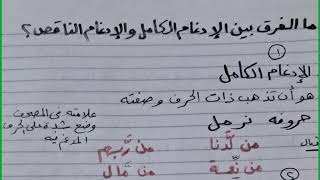 ما الفرق بين الإدغام الكامل والإدغام الناقص؟
١
الإدغام الكامل
هو أن تذهب ذات الحرف وصفته
حروفه نرمل
علامته في المصحف
وضع شدة على الحرف
المدغم فيه
من لَّدنا من رَّبهم
من نِّعمة من مَّال
٢